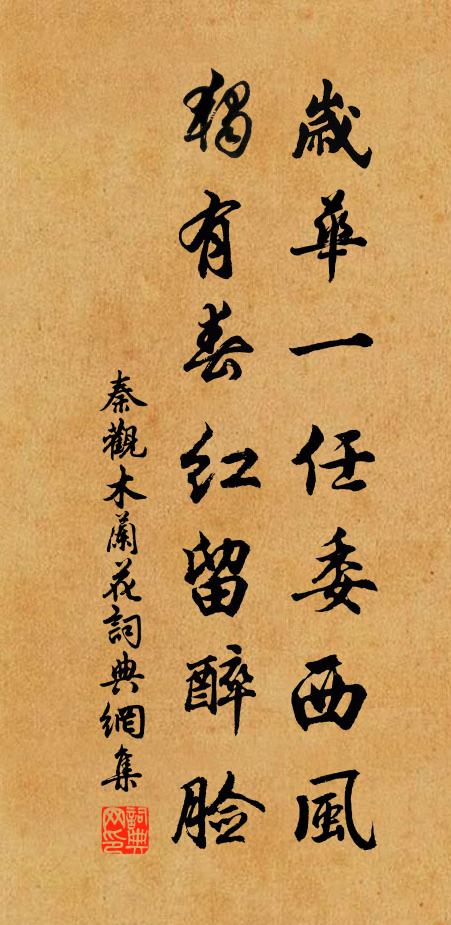 歲華一任委西風
獨有春紅留醉臉
秦觀木蘭花詞典網集
詞典网印